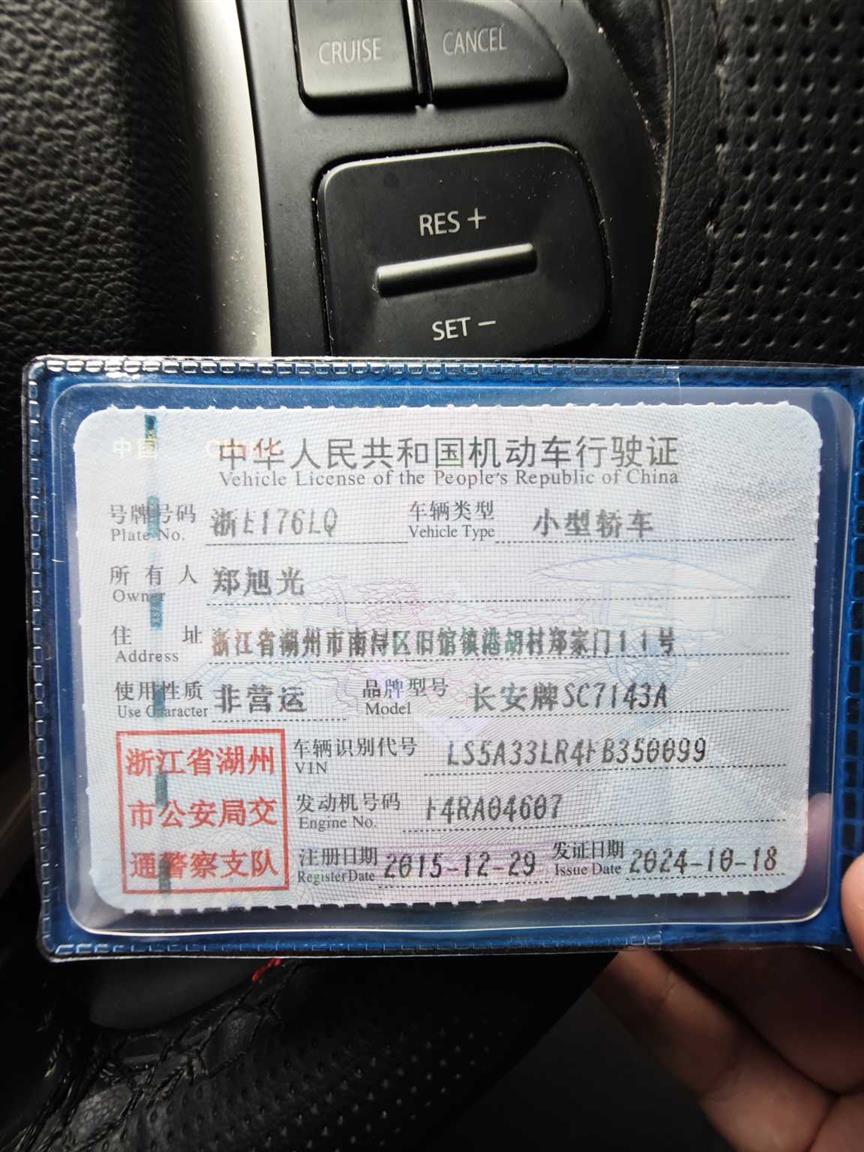 CRUISE
CANCEL
RES +
SET −
中国
中华人民共和国机动车行驶证
Vehicle License of the People's Republic of China
号牌号码 浙E176LQ 车辆类型 小型轿车
Plate No. Vehicle Type
所有人 郑旭光
Owner
住址 浙江省湖州市南浔区旧馆镇港胡村郑家门11号
Address
使用性质 非营运 品牌型号 长安牌SC7143A
Use Character Model
浙江省湖州
市公安局交
通警察支队
车辆识别代号 LS5A33LR4FB350099
VIN
发动机号码 F4RA04607
Engine No.
注册日期 2015-12-29 发证日期 2024-10-18
Register Date Issue Date